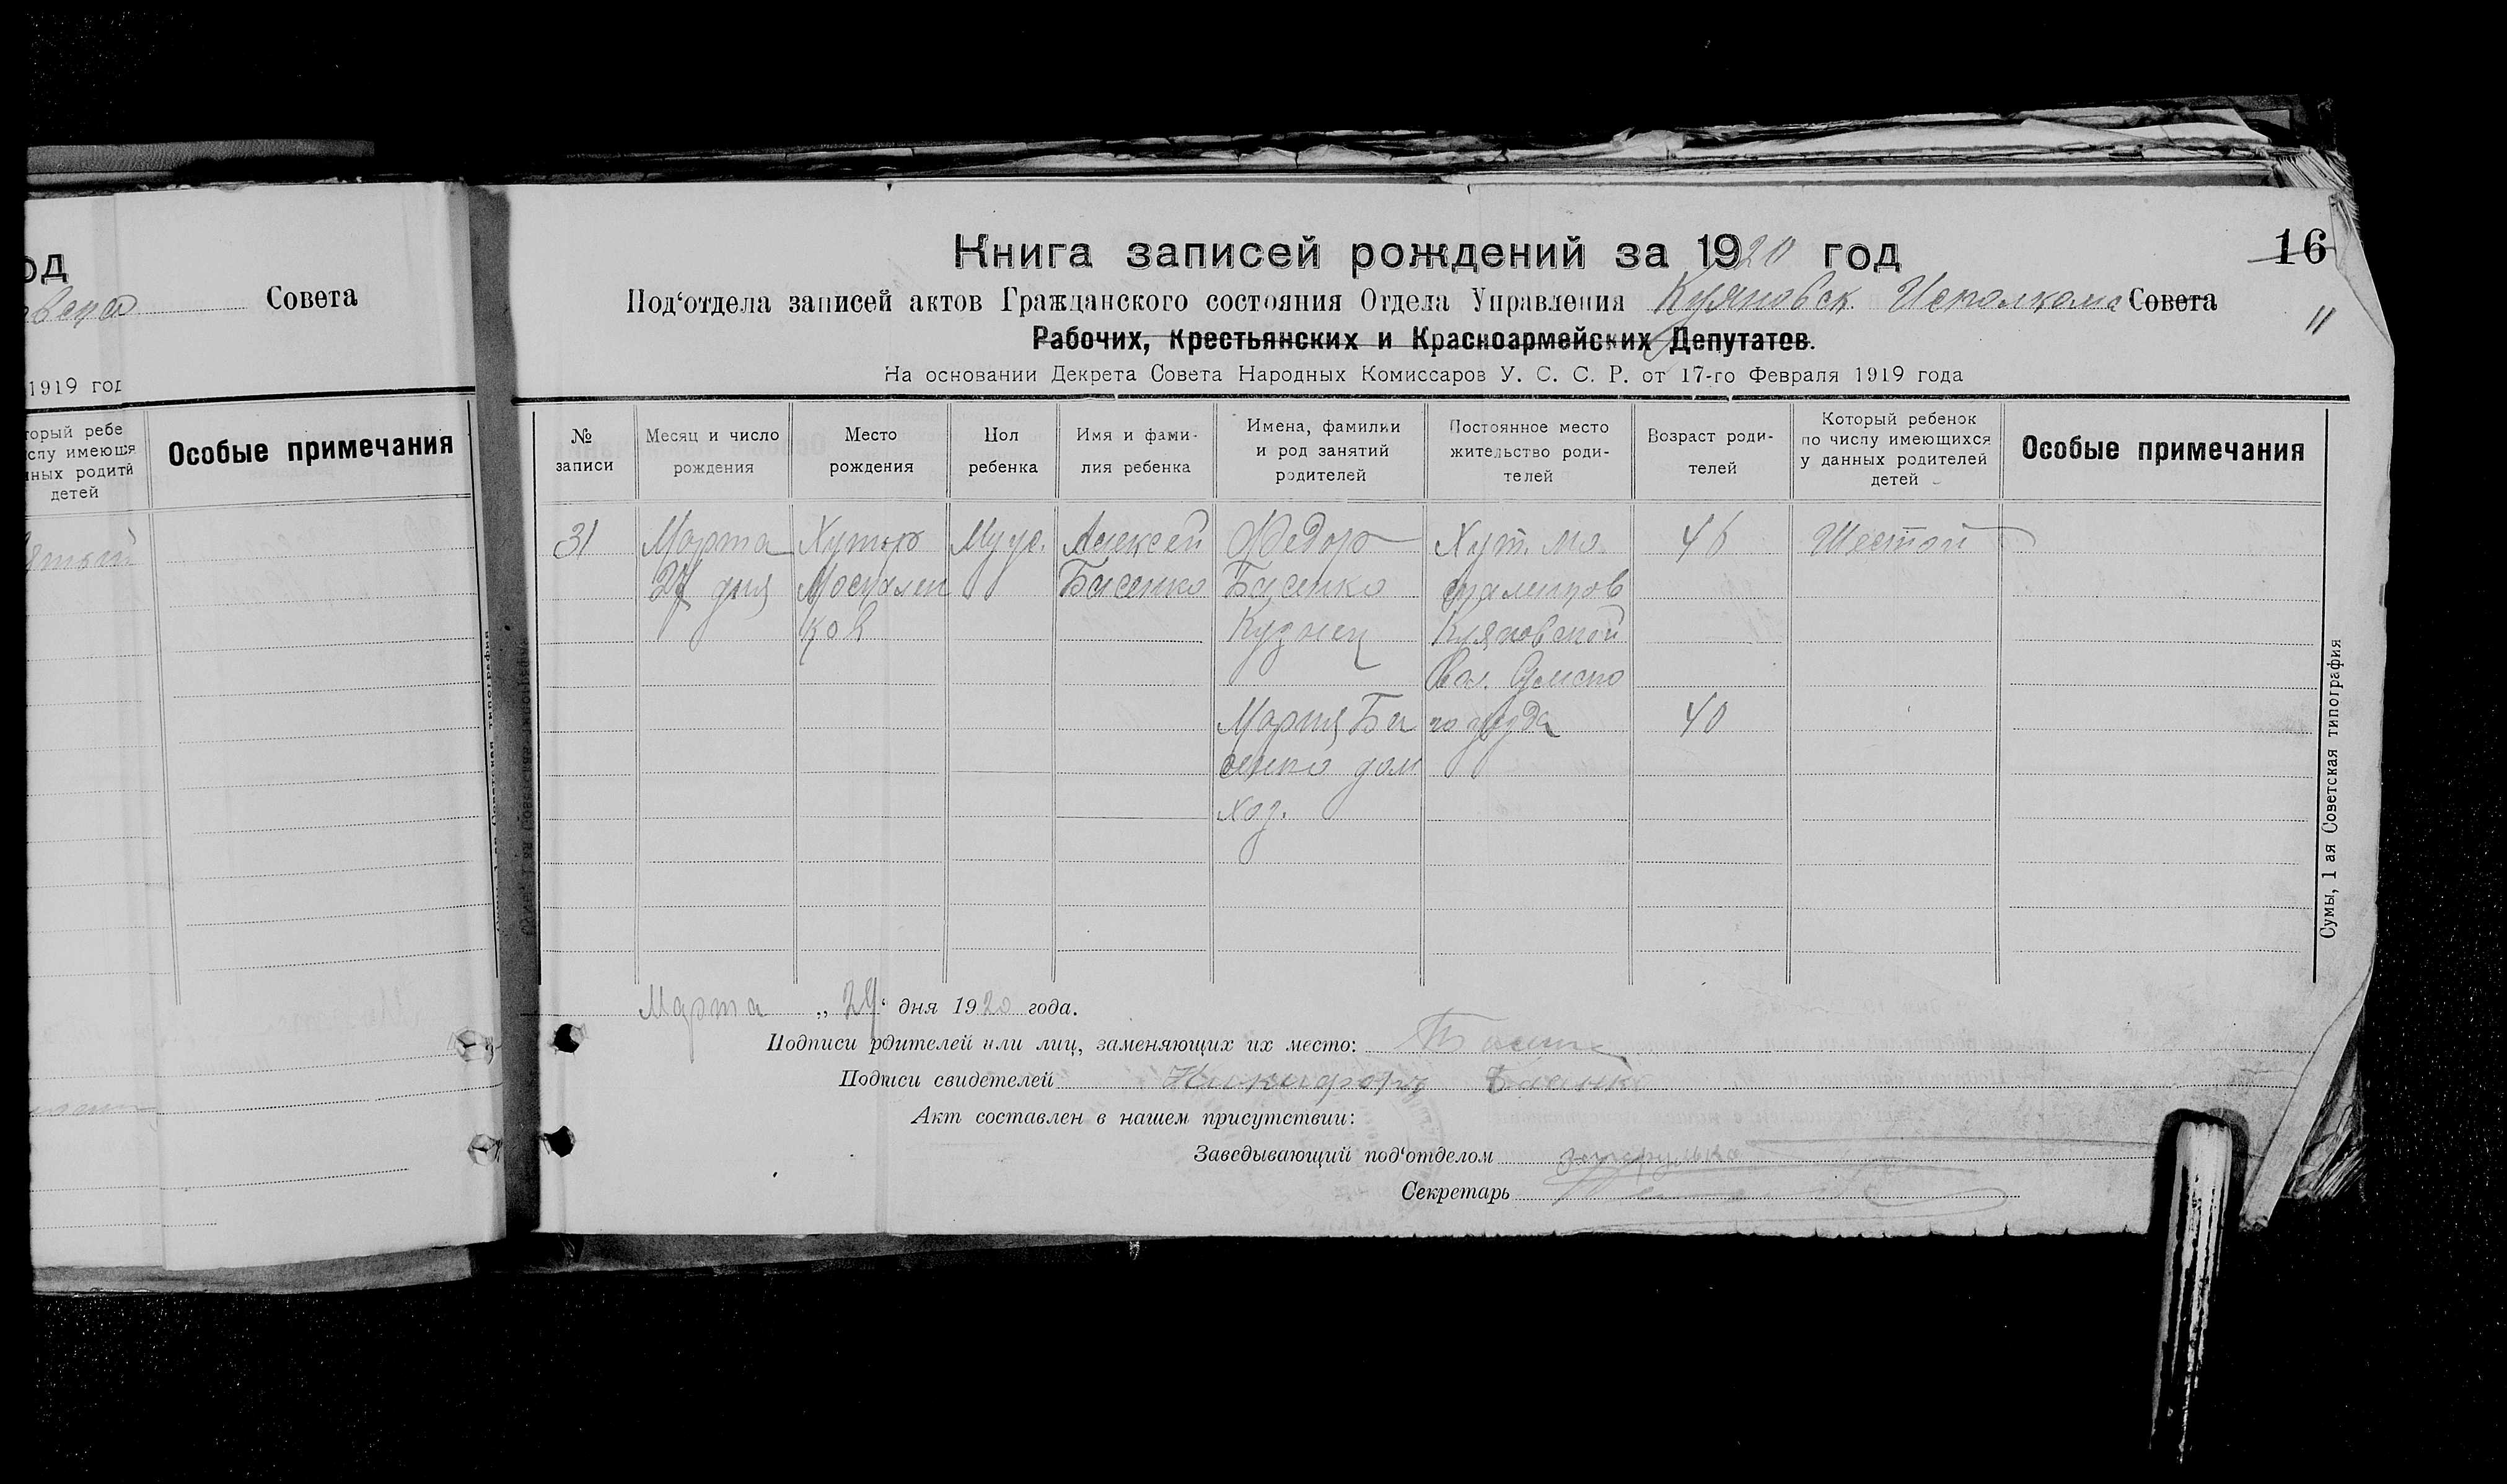 од
Совета
1919 год
детей
Особые примечания
Книга записей рождений за 1920 год
16
Под‘отдела записей актов Гражданского состояния Отдела Управления Куяновск. Исполкома Совета
11
Рабочих, Крестьянских и Красноармейских Депутатов.
На основании Декрета Совета Народных Комиссаров У. С. С. Р. от 17-го Февраля 1919 года
№ записи
Месяц и число рождения
Место рождения
Пол ребенка
Имя и фами-
лия ребенка
Имена, фамилии
и род занятий
родителей
Постоянное место
жительство роди-
телей
Возраст роди-
телей
Который ребенок
по числу имеющихся
у данных родителей
детей
Особые примечания
31
Марта
дня
Хутор
Муж.
Алексей
Бисенко
Федор
Бисенко
Кузнец
Мария Би
сенко дом
хоз.
Хут.
Куяновской
Вол. Сумско
го уезда
46
40
Шестой
Марта „ “ дня 1920 года.
Подписи родителей или лиц, заменяющих их место:
Подписи свидетелей Никифоръ
Акт составлен в нашем присутствии:
Заведывающий под‘отделом
Секретарь
Сумы, 1 ая Советская типография